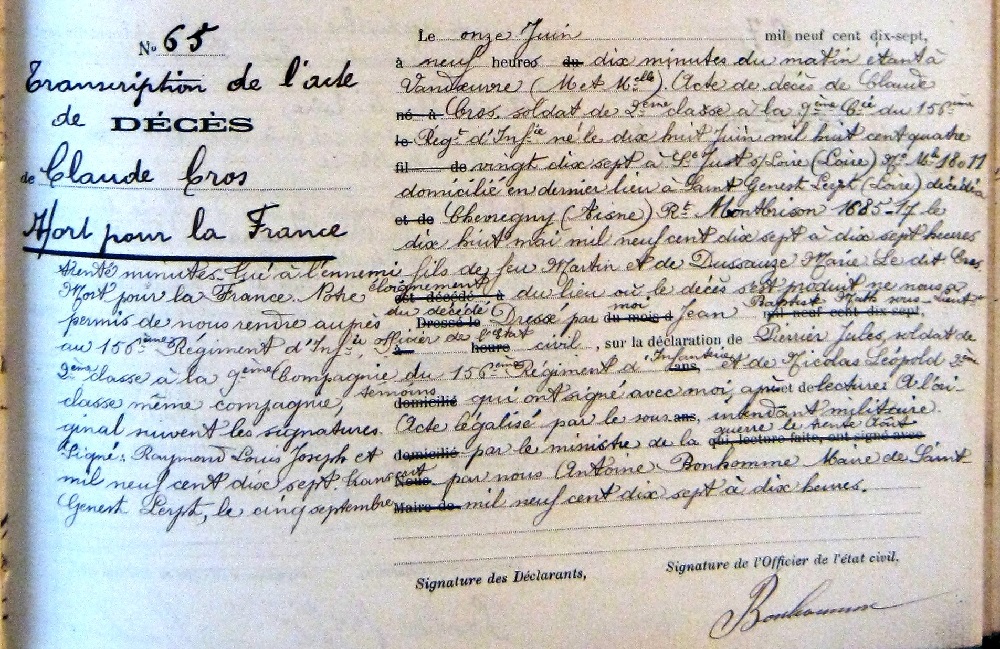 No 65
Transcription de l'acte
de DÉCÈS
de Claude Cros
Mort pour la France
Le onze Juin mil neuf cent dix-sept,
à neuf heures du dix minutes du matin etant à
Vandœuvre (M et Melle). Acte de décès de Claude
né à Cros, soldat de 2ème classe à la 9ème Cie du 156ème
le Regt d'Infie né le dix huit Juin mil huit cent quatre
fil de vingt dix sept à St Just s/Loire (Loire) No Mle 18017
domicilié en dernier lieu à Saint Genest Lerpt (Loire) décédé à
et de Chevregny (Aisne) Rt Montbrison 1685-17 le
dix huit mai mil neuf cent dix sept à dix sept heures
trente minutes, tué à l'ennemi fils de feu Martin et de Dussauze Marie. Le dit Cros
Mort pour la France. Notre éloignement est décédé à du lieu où le décès s'est produit ne nous a
permis de nous rendre auprès du décédé Dressé le Dressé par moi du mois d Jean Baptiste sous-lieut mil neuf cent dix-sept,
au 156ème Régiment d'Infie, officier de l'état à heure civil, sur la déclaration de Pierrier Jules, soldat de
2ème classe à la 9ème Compagnie du 156ème Régiment d'Infanterie ans, et de Nicolas Léopold 2me
classe même compagnie, témoins domicilié qui ont signé avec moi, après et de lecture. A l'ori
ginal suivent les signatures. Acte légalisé par le sous ans, intendant militaire
Signé: Raymond Louis Joseph et domicilié par le ministre de la guerre le trente Août qui, lecture faite, ont signé avec
mil neuf cent dix sept. Transcrit Nous par nous Antoine Bonhomme Maire de Saint
Genest Lerpt, le cinq septembre Maire de mil neuf cent dix sept à dix heures.
Signature des Déclarants,
Signature de l'Officier de l'état civil,
Bonhomme